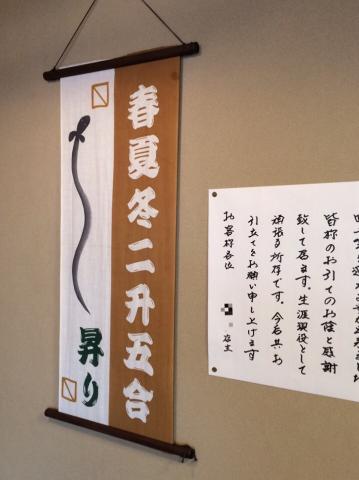 春夏冬二升五合
昇り
皆称のお引てのお陰と感謝
致して居ます。生涯現役として
頑張る所存です。今后共お
引立てをお願い申し上げます
お客称各位
店主